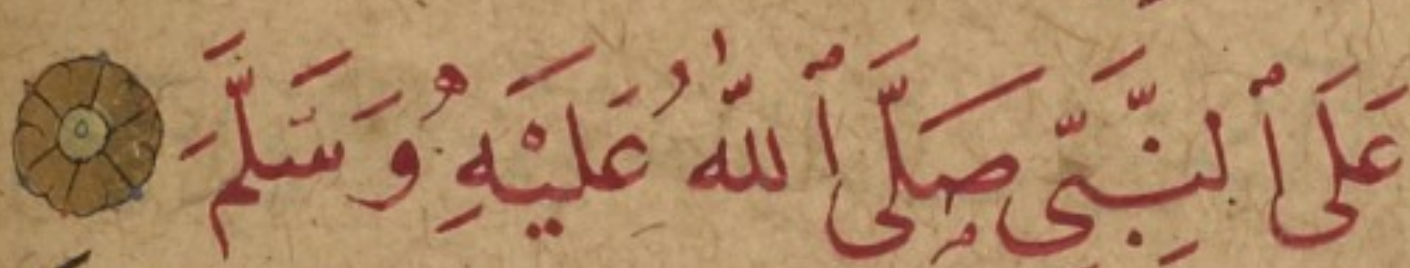 عَلَى ٱلنَّبِيِّ صَلَّى ٱللّٰهُ عَلَيْهِ وَسَلَّمَ